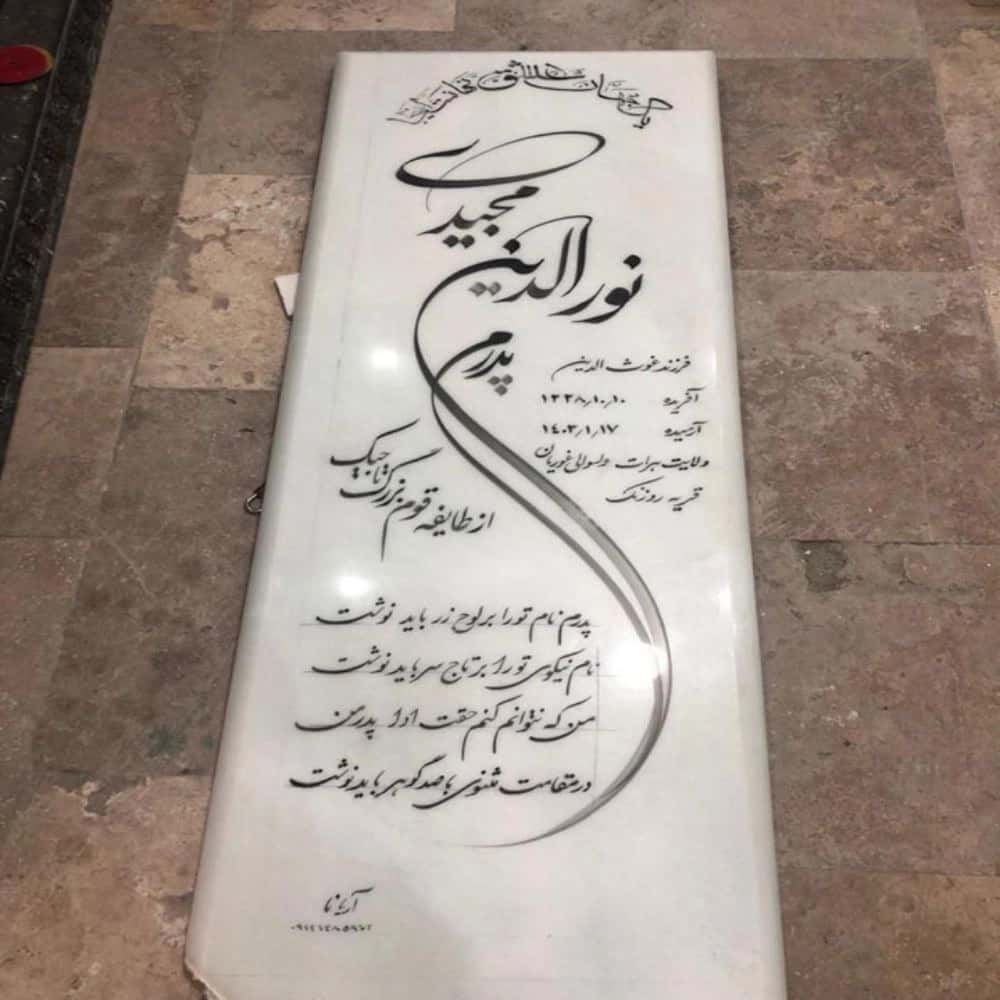 یک جهان عشق نهان است اینجا
مجیدی
نورالدین
پدرم
فرزند غوث الدین
آفریده ۱۳۳۸/۱۰/۱۰
آرمیده ۱۴۰۳/۱/۱۷
ولایت هرات ولسوالی غوریان
قریه روزنک
از طایفه قوم بزرگ تاجیک
پدرم نام تو را بر لوح زر باید نوشت
نام نیکوی تو را بر تاج سر باید نوشت
من که نتوانم کنم حقت ادا پدر من
در مقامت مثنوی با صد گوهر باید نوشت